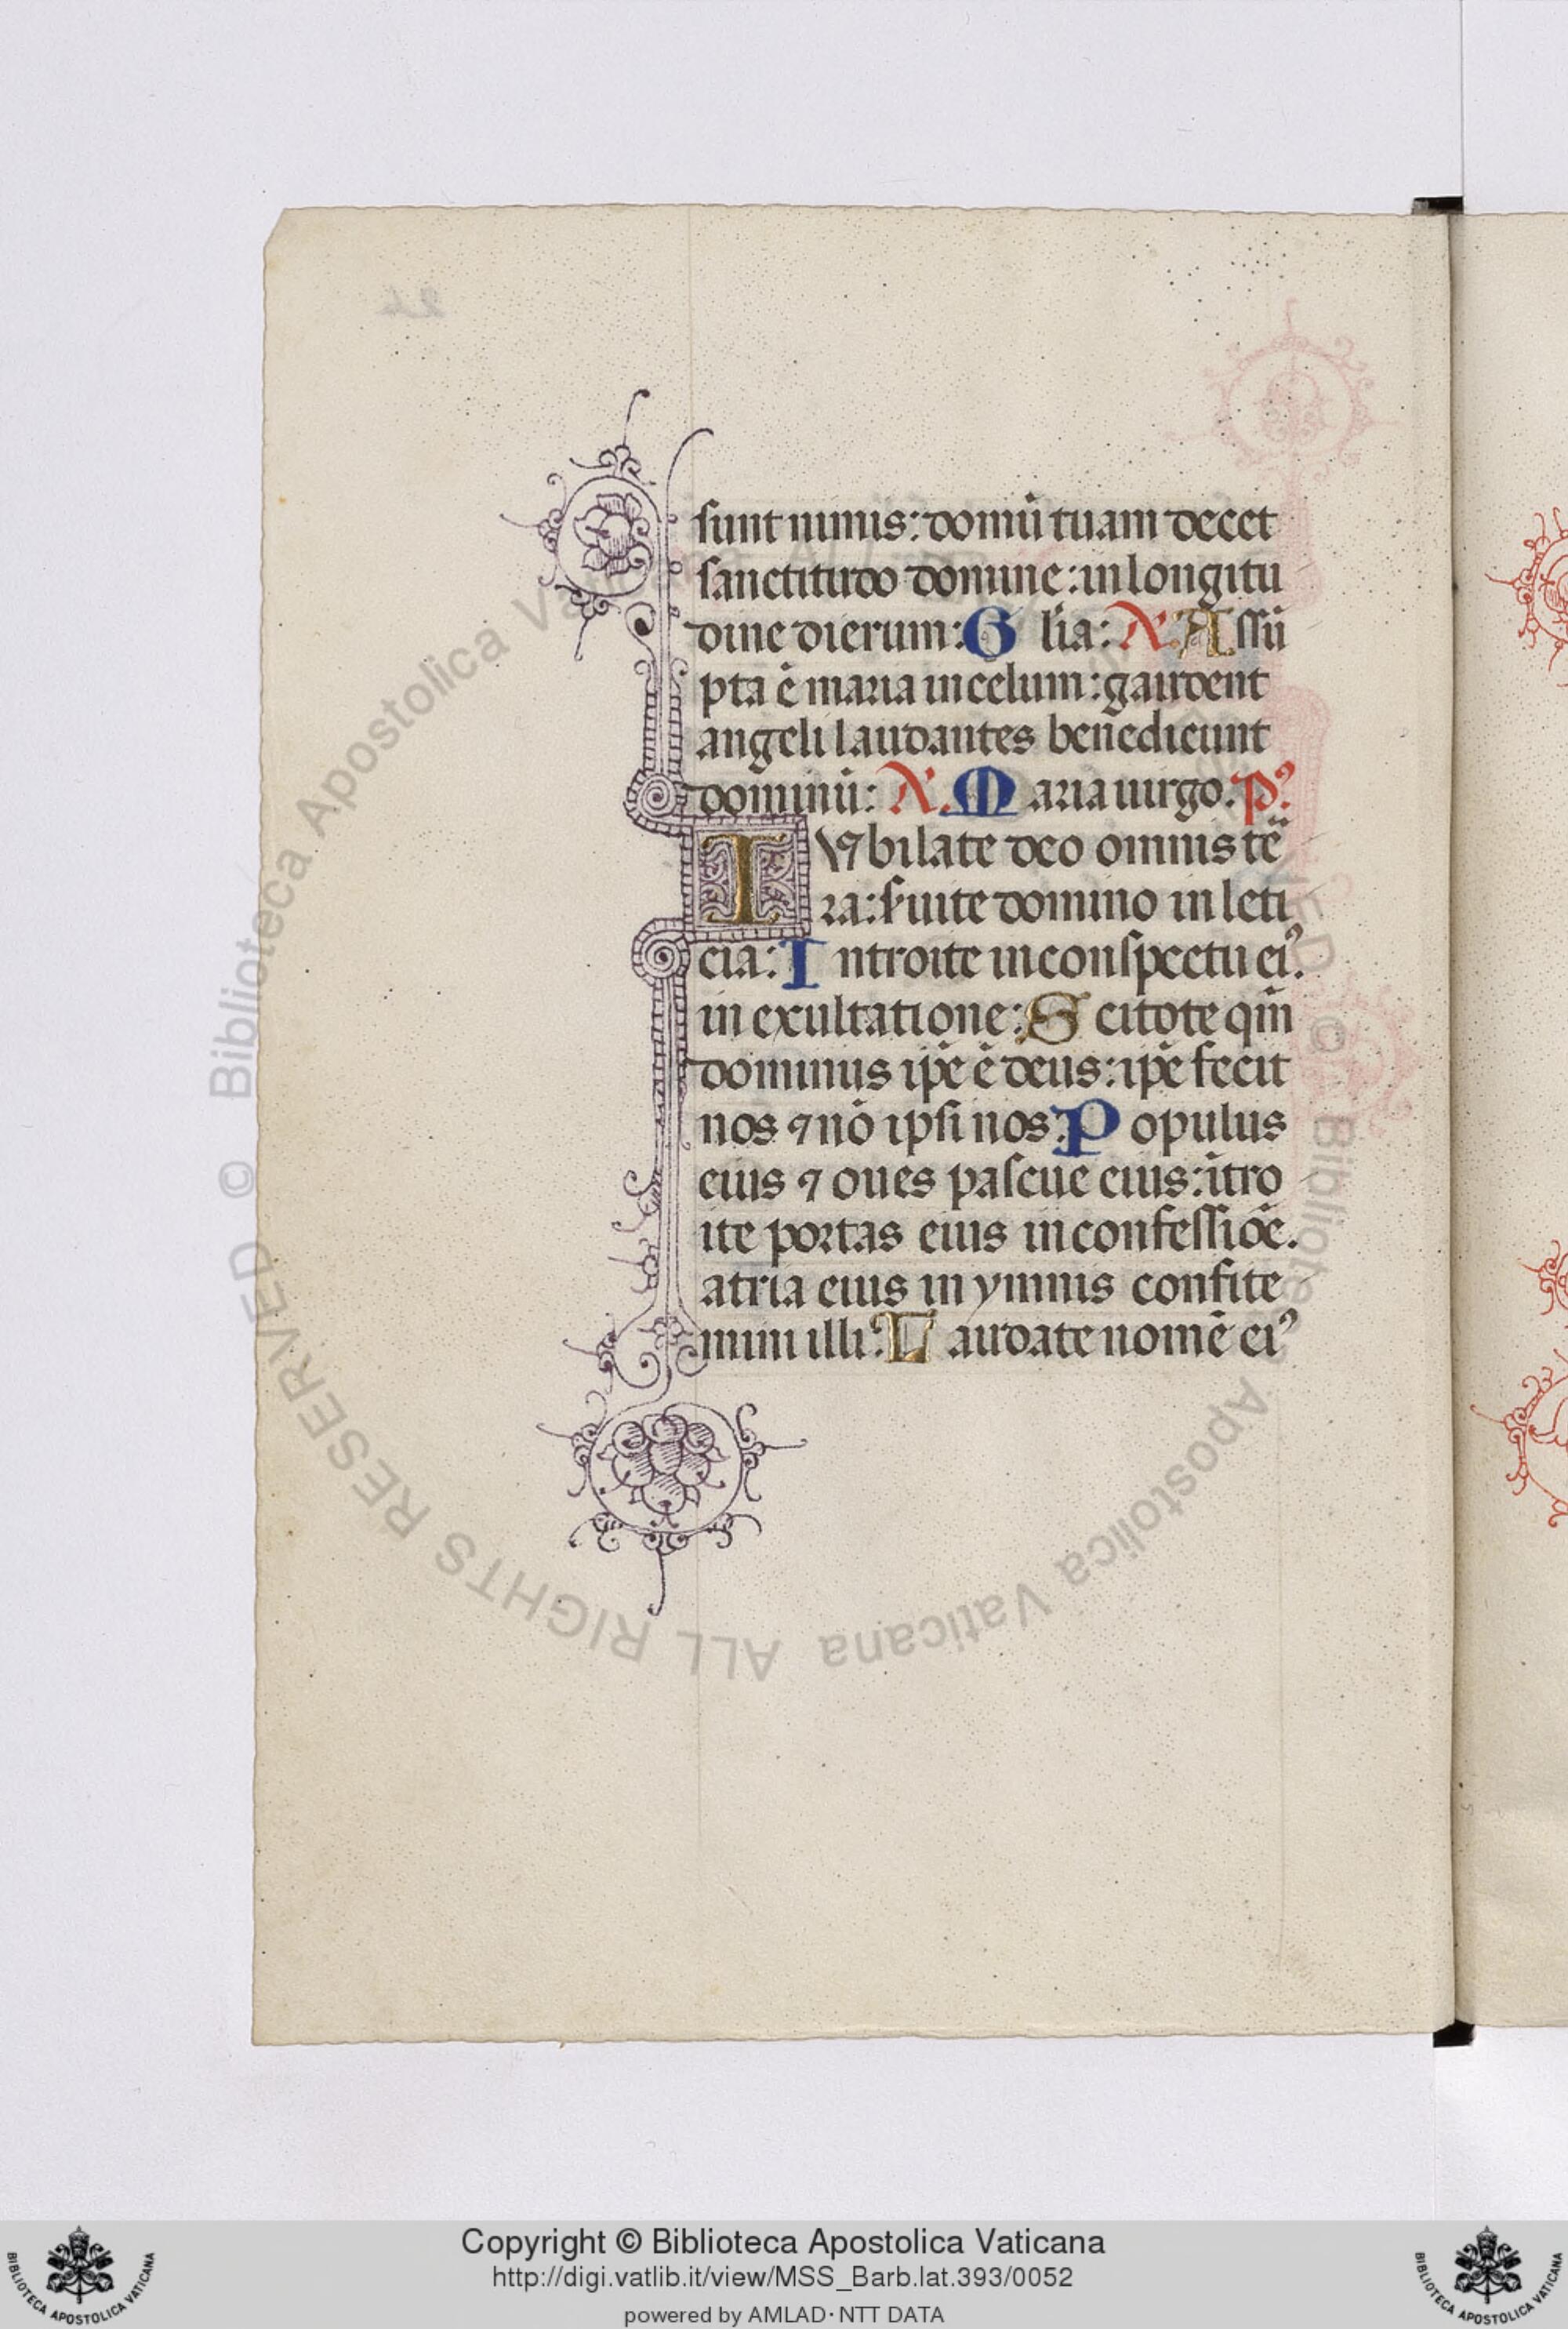 sunt nimis: domū tuam decet
sanctitudo domine: in longitu
dine dierum: G līa: A. Assū
pta ē maria in celum: gaudent
angeli laudantes benedicunt
dominū: A. Maria uirgo. Pꝰ
IVbilate deo omnis te᷒
ra: ẜuite domino in leti
cia: Introite in conspectu eiꝰ.
in exultatione: Scitote qm̄
dominus ip̄e ē deus: ip̄e fecit
nos ⁊ nō ipsi nos: Populus
eius ⁊ oues pascue eius: ītro
ite portas eius in confessiōe.
atria eius in ymnis confite
mini illi: Laudate nomē eiꝰ
© Biblioteca Apostolica Vaticana ALL RIGHTS RESERVED
© Biblioteca Apostolica Vaticana ALL RIGHTS RESERVED
Copyright © Biblioteca Apostolica Vaticana
http://digi.vatlib.it/view/MSS_Barb.lat.393/0052
powered by AMLAD·NTT DATA
BIBLIOTECA APOSTOLICA VATICANA
BIBLIOTECA APOSTOLICA VATICANA